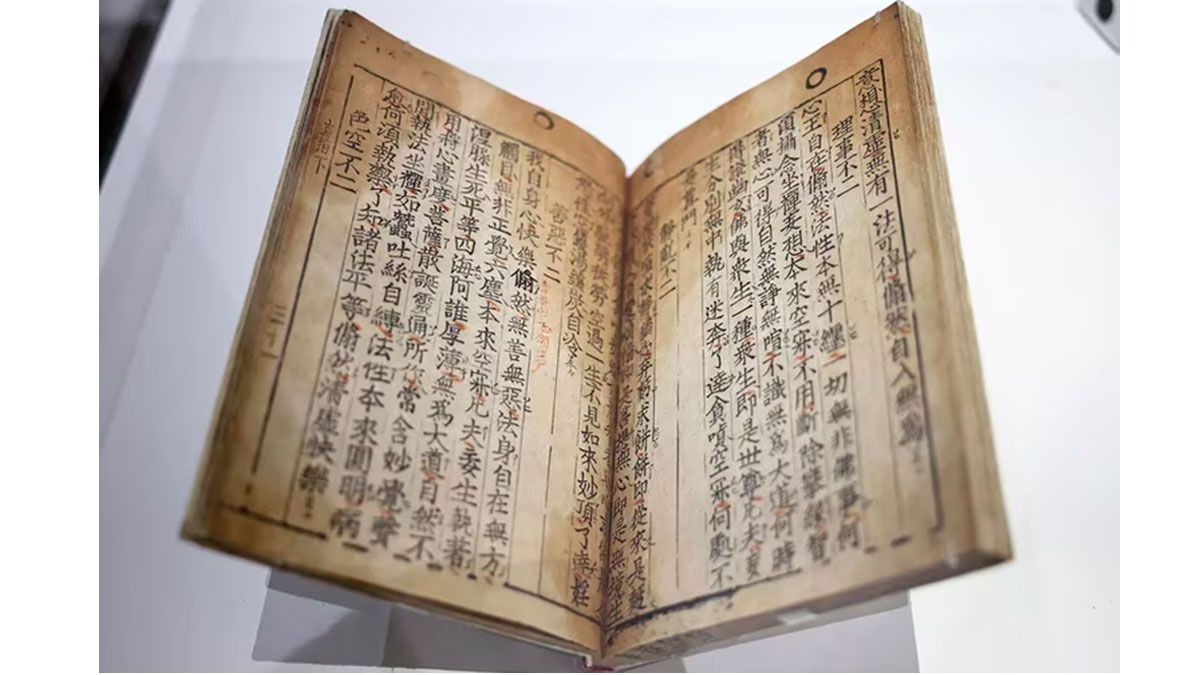 意想清虛無有一法可得翛然自入無爲
理事不二
心王自在翛然法性本無十纏一切無非佛事何
須攝念坐禪妄想本來空寂不用斷除攀緣智
者無心可得自然無諍無喧不識無爲大道何時
得證幽玄佛與衆生一種衆生即是世尊凡夫妄
生分別無中執有迷奔了達貪嗔空寂何處不
是眞門
靜亂不二
求餠餠即從來是麵
是菩提無心即是無境生
徒勞空過一生不見如來妙頂了達婬
鑊湯爐炭自冷
善惡不二
我自身心快樂翛然無善無惡法身自在無方
觸目無非正覺六塵本來空寂凡夫妄生執著
涅槃生死平等四海阿誰厚薄無爲大道自然不
用將心畫度菩薩散誕靈通所作常含妙覺聲
聞執法坐禪如蠶吐絲自縛法性本來圓明病
愈何須執藥了知諸法平等翛然清虛快樂
色空不二
直指下